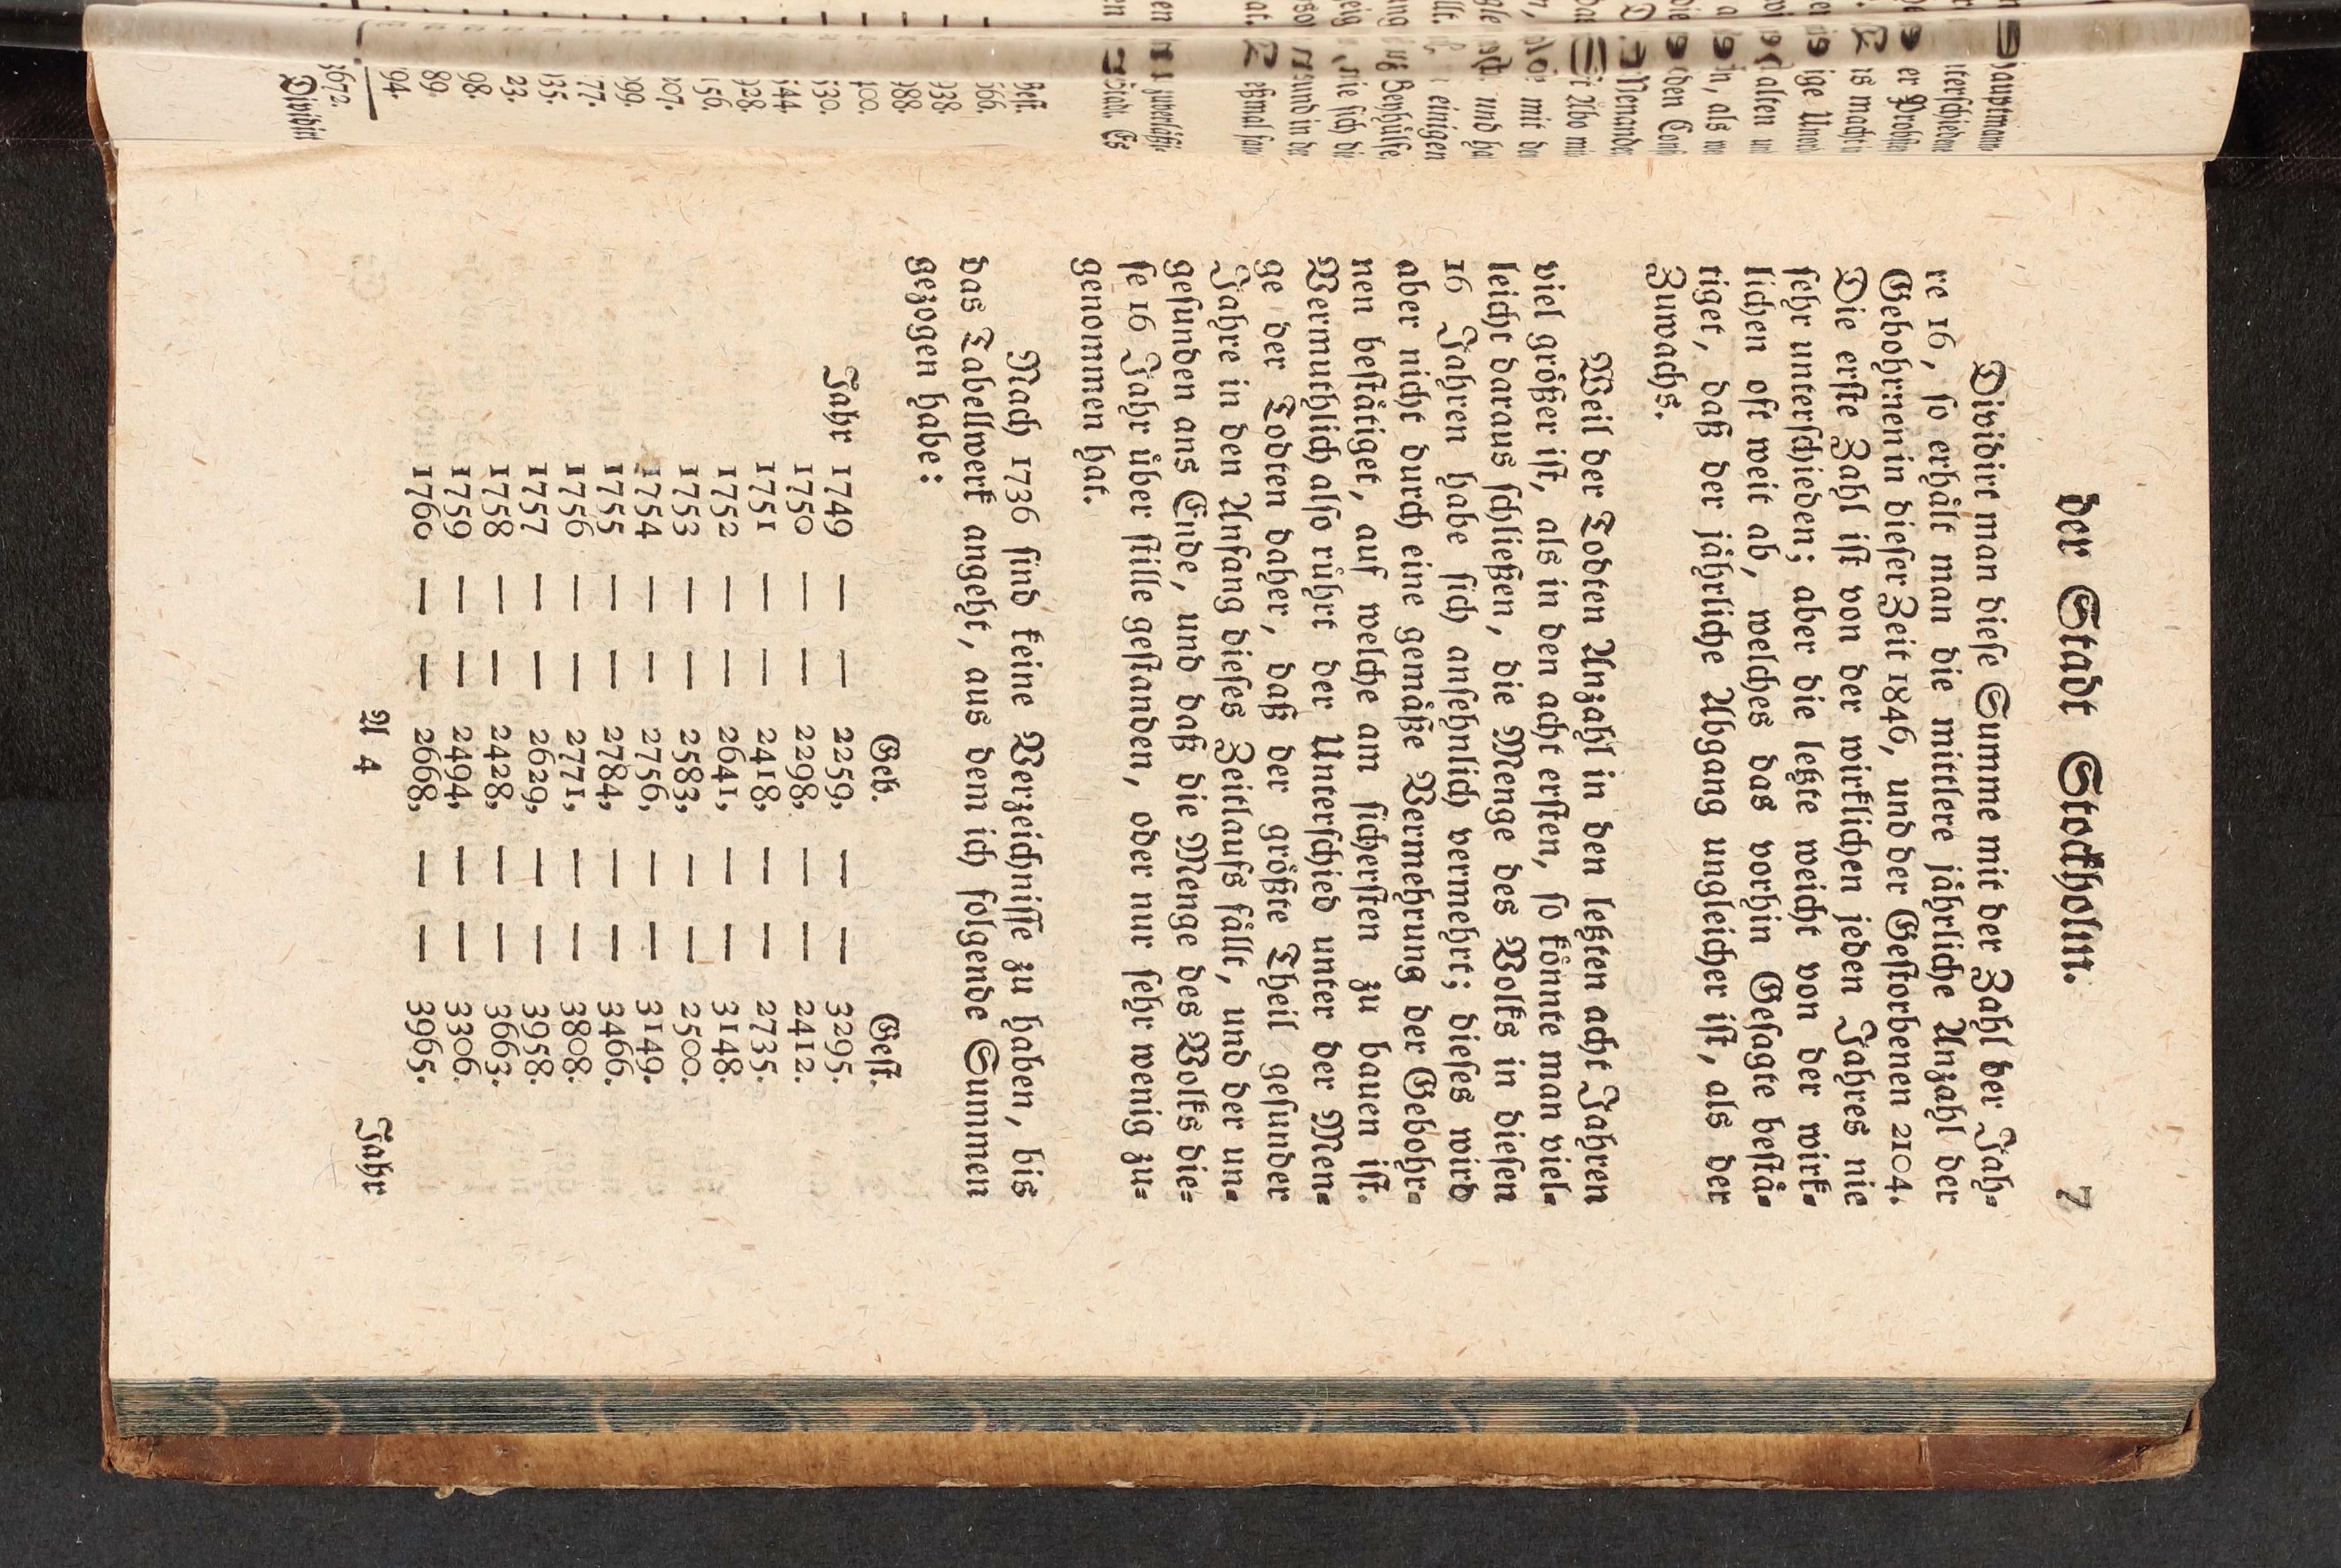 der Stadt Stockholm. 7
Dividirt man diese Summe mit der Zahl der Jah-
re 16, so erhält man die mittlere jährliche Anzahl der
Gebohrnen in dieser Zeit 1846, und der Gestorbenen 2104.
Die erste Zahl ist von der wirklichen jeden Jahres nie
sehr unterschieden; aber die letzte weicht von der wirk-
lichen oft weit ab, welches das vorhin Gesagte bestä-
tiget, daß der jährliche Abgang ungleicher ist, als der
Zuwachs.
Weil der Todten Anzahl in den letzten acht Jahren
viel größer ist, als in den acht ersten, so könnte man viel-
leicht daraus schließen, die Menge des Volks in diesen
16 Jahren habe sich ansehnlich vermehrt; dieses wird
aber nicht durch eine gemäße Vermehrung der Gebohr-
nen bestätiget, auf welche am sichersten zu bauen ist.
Vermuthlich also rührt der Unterschied unter der Men-
ge der Todten daher, daß der größte Theil gesunder
Jahre in den Anfang dieses Zeitlaufs fällt, und der un-
gesunden ans Ende, und daß die Menge des Volks die-
se 16 Jahr über stille gestanden, oder nur sehr wenig zu-
genommen hat.
Nach 1736 sind keine Verzeichnisse zu haben, bis
das Tabellwerk angeht, aus dem ich folgende Summen
gezogen habe:
Geb. Gest.
Jahr 1749 — — 2259, — — 3295.
1750 — — 2298, — — 2412.
1751 — — 2418, — — 2735.
1752 — — 2641, — — 3148.
1753 — — 2583, — — 2500.
1754 — — 2756, — — 3149.
1755 — — 2784, — — 3466.
1756 — — 2771, — — 3808.
1757 — — 2629, — — 3958.
1758 — — 2428, — — 3663.
1759 — — 2494, — — 3306.
1760 — — 2668, — — 3965.
A 4 Jahr